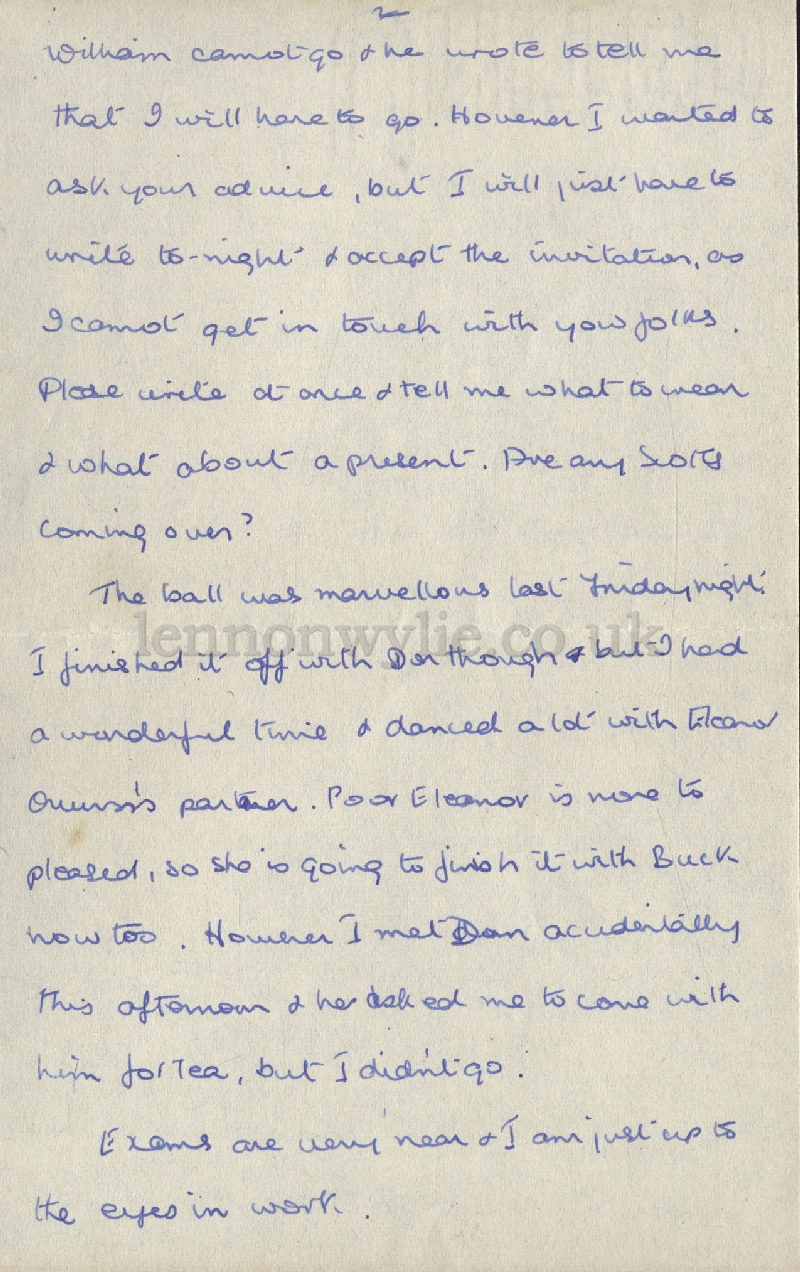 2
William cannot go & he wrote to tell me
that I will have to go. However I wanted to
ask your advice, but I will just have to
write to-night & accept the invitation, as
I cannot get in touch with you folks.
Please write at once & tell me what to wear
& what about a present. Are any Scots
coming over?
The ball was marvellous last Friday night.
lennonwylie.co.uk
I finished it off with Dan though & but I had
a wonderful time & danced a lot with Eleanor
partner. Poor Eleanor is none to
pleased, so she is going to finish it with Buck
now too. However I met Dan accidentally
this afternoon & he asked me to come with
him for Tea, but I didn't go.
Exams are very near & I am just up to
the eyes in work.